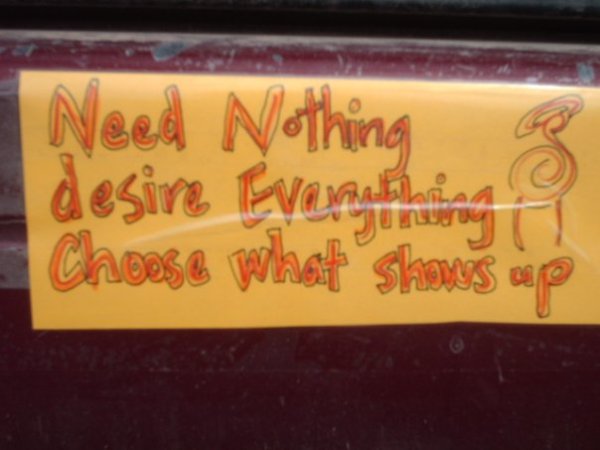 Need Nothing
desire Everything
Choose what shows up